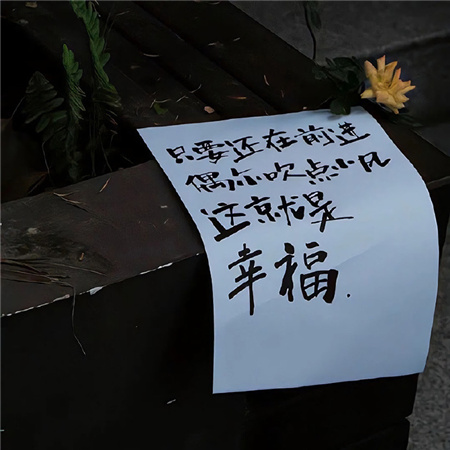 只要还在前进
偶尔吹点小风
这就是
幸福.